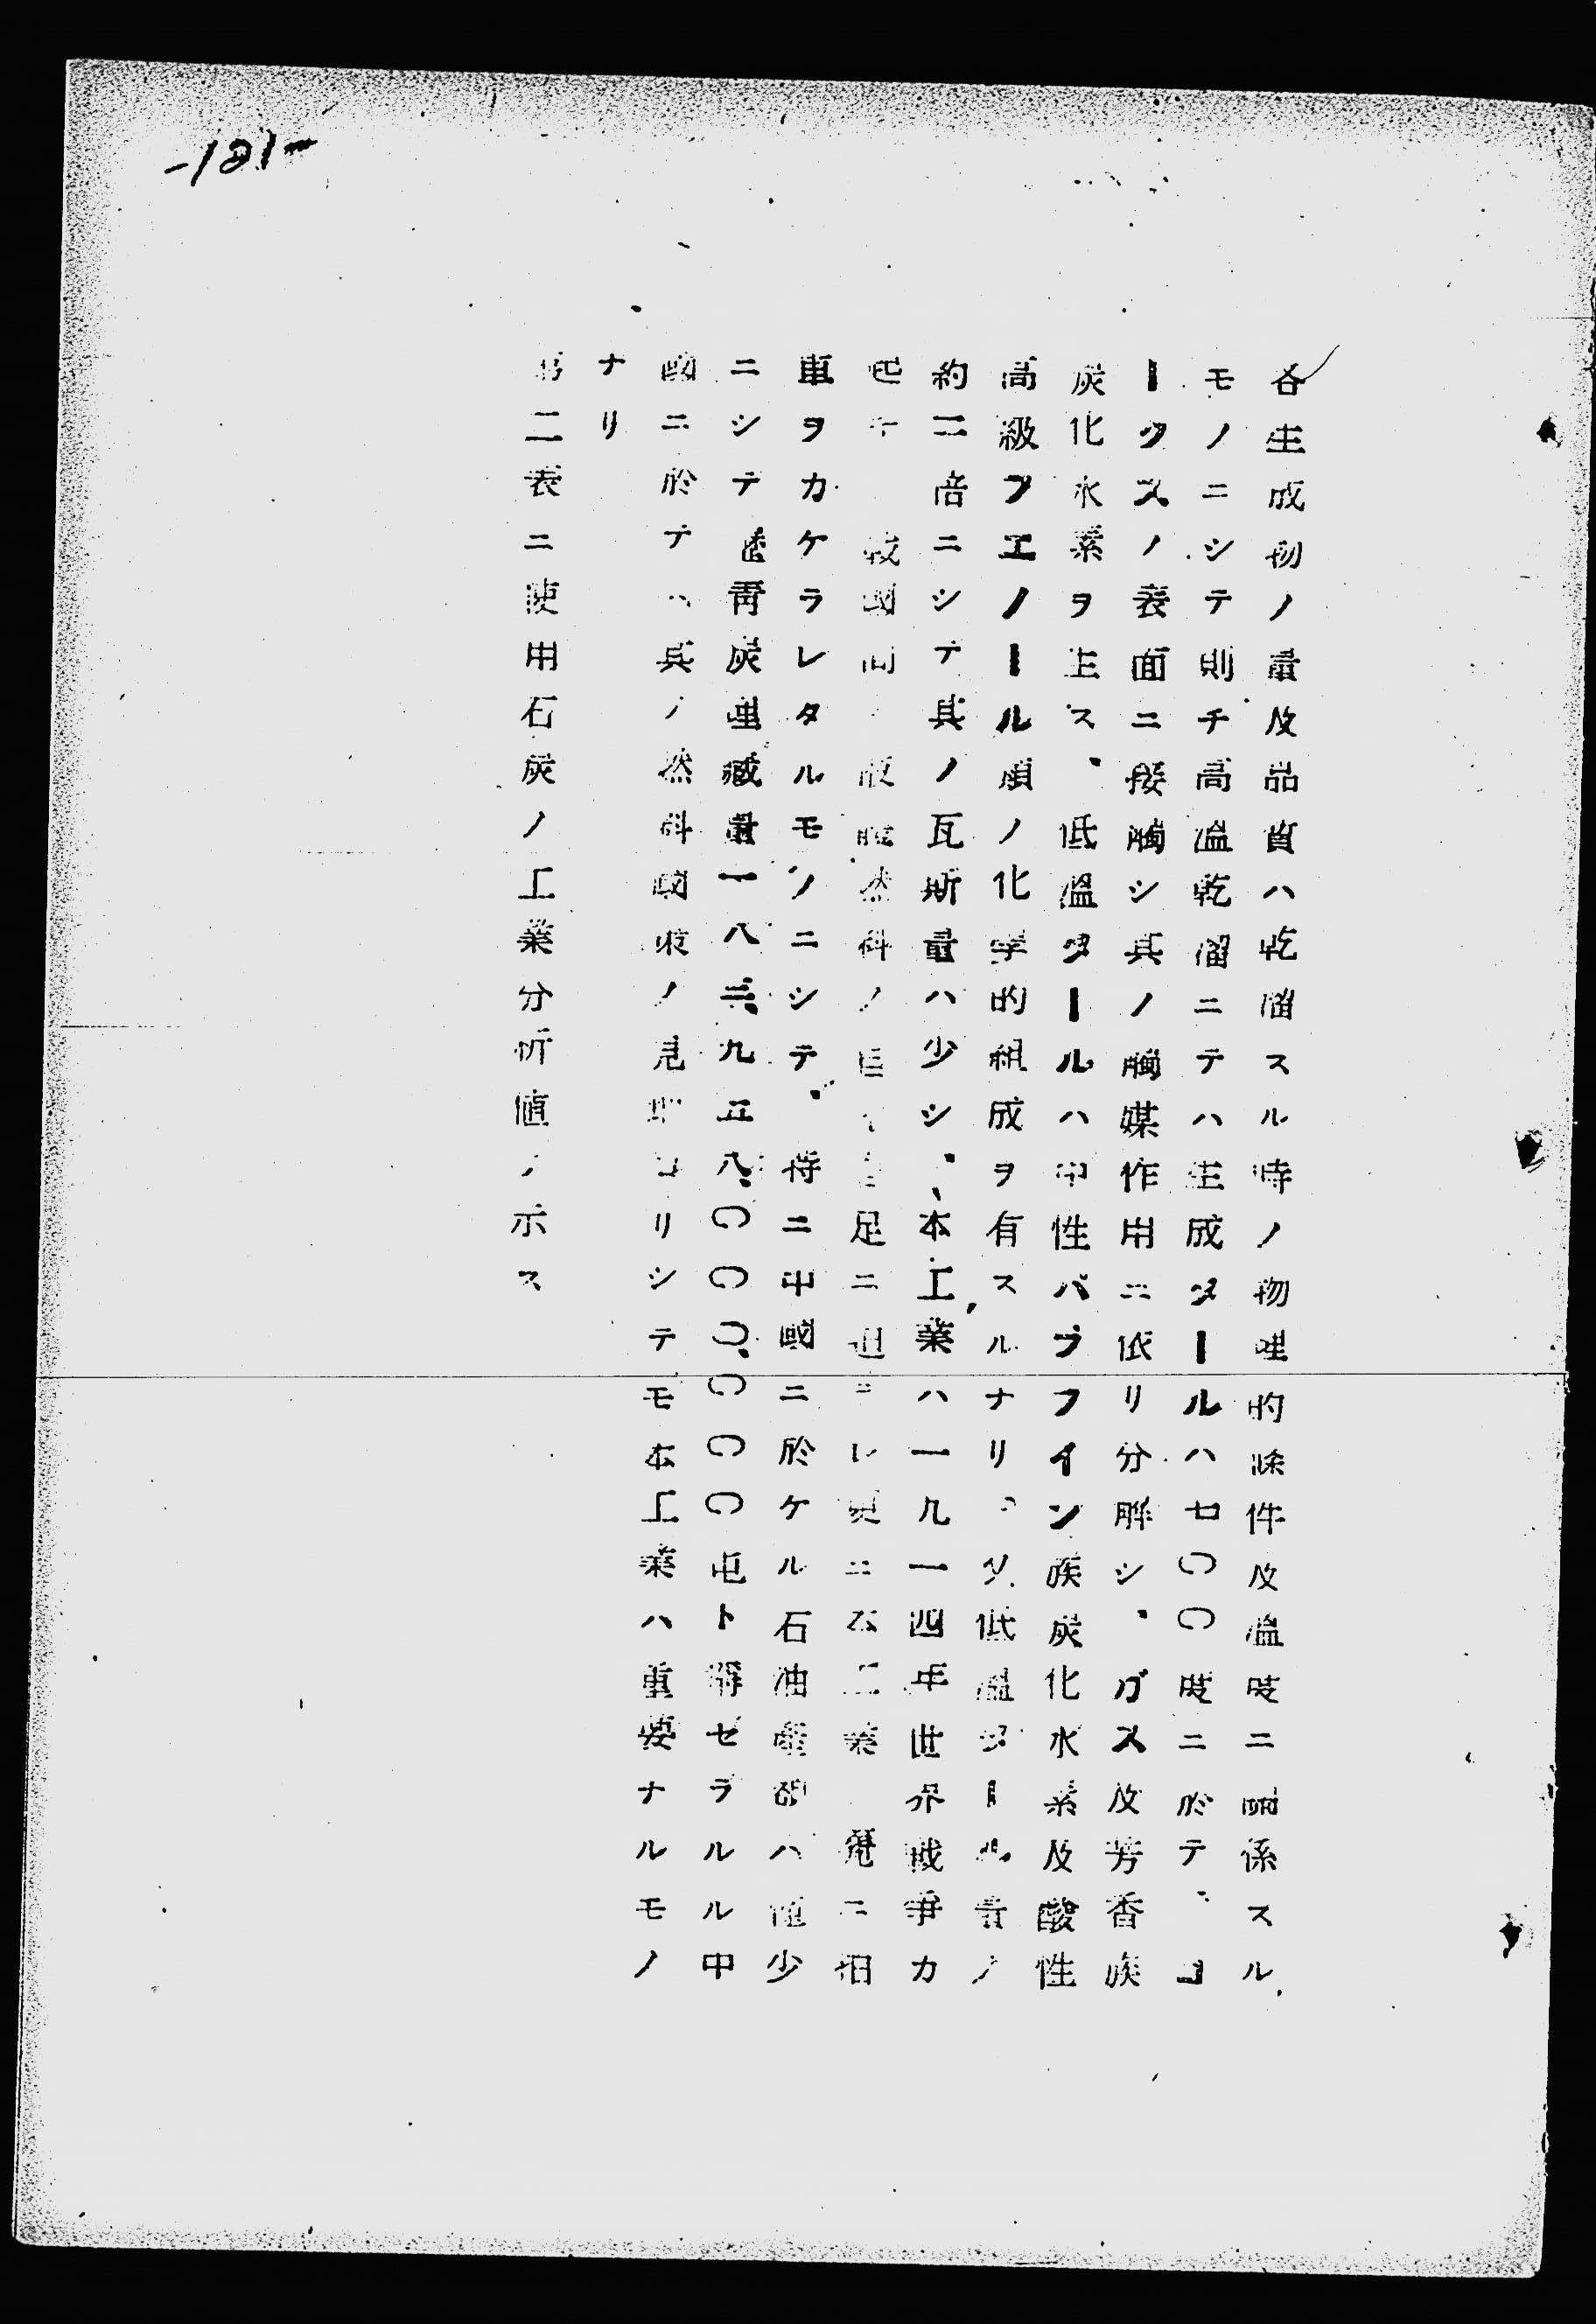 -121-
各生成物ノ量及品質ハ乾溜スル時ノ物理的條件及溫度ニ關係スル
モノニシテ則チ高溫乾溜ニテハ生成タールハ七〇〇度ニ於テ、コ
ークスノ表面ニ接觸シ其ノ觸媒作用ニ依リ分解シ、ガス及芳香族
炭化水素ヲ生ス、低溫タールハ中性パラフイン族炭化水素及酸性
高級フエノール類ノ化学的組成ヲ有スルナリ、又低溫タール量ノ
約二倍ニシテ其ノ瓦斯量ハ少シ、本工業ハ一九一四年世界戰爭カ
起 國 液體燃料ノ自 足ニ迫ラレ更ニ本工業 發ニ拍
車ヲカケラレタルモノニシテ、特ニ中國ニ於ケル石油產額ハ僅少
ニシテ瀝靑炭埋藏量一八三、九五八、〇〇〇、〇〇〇屯ト稱セラルル中
國ニ於テハ其ノ燃料國策ノ見地ヨリシテモ本工業ハ重要ナルモノ
ナリ
第二表ニ使用石炭ノ工業分析値ノ示ス